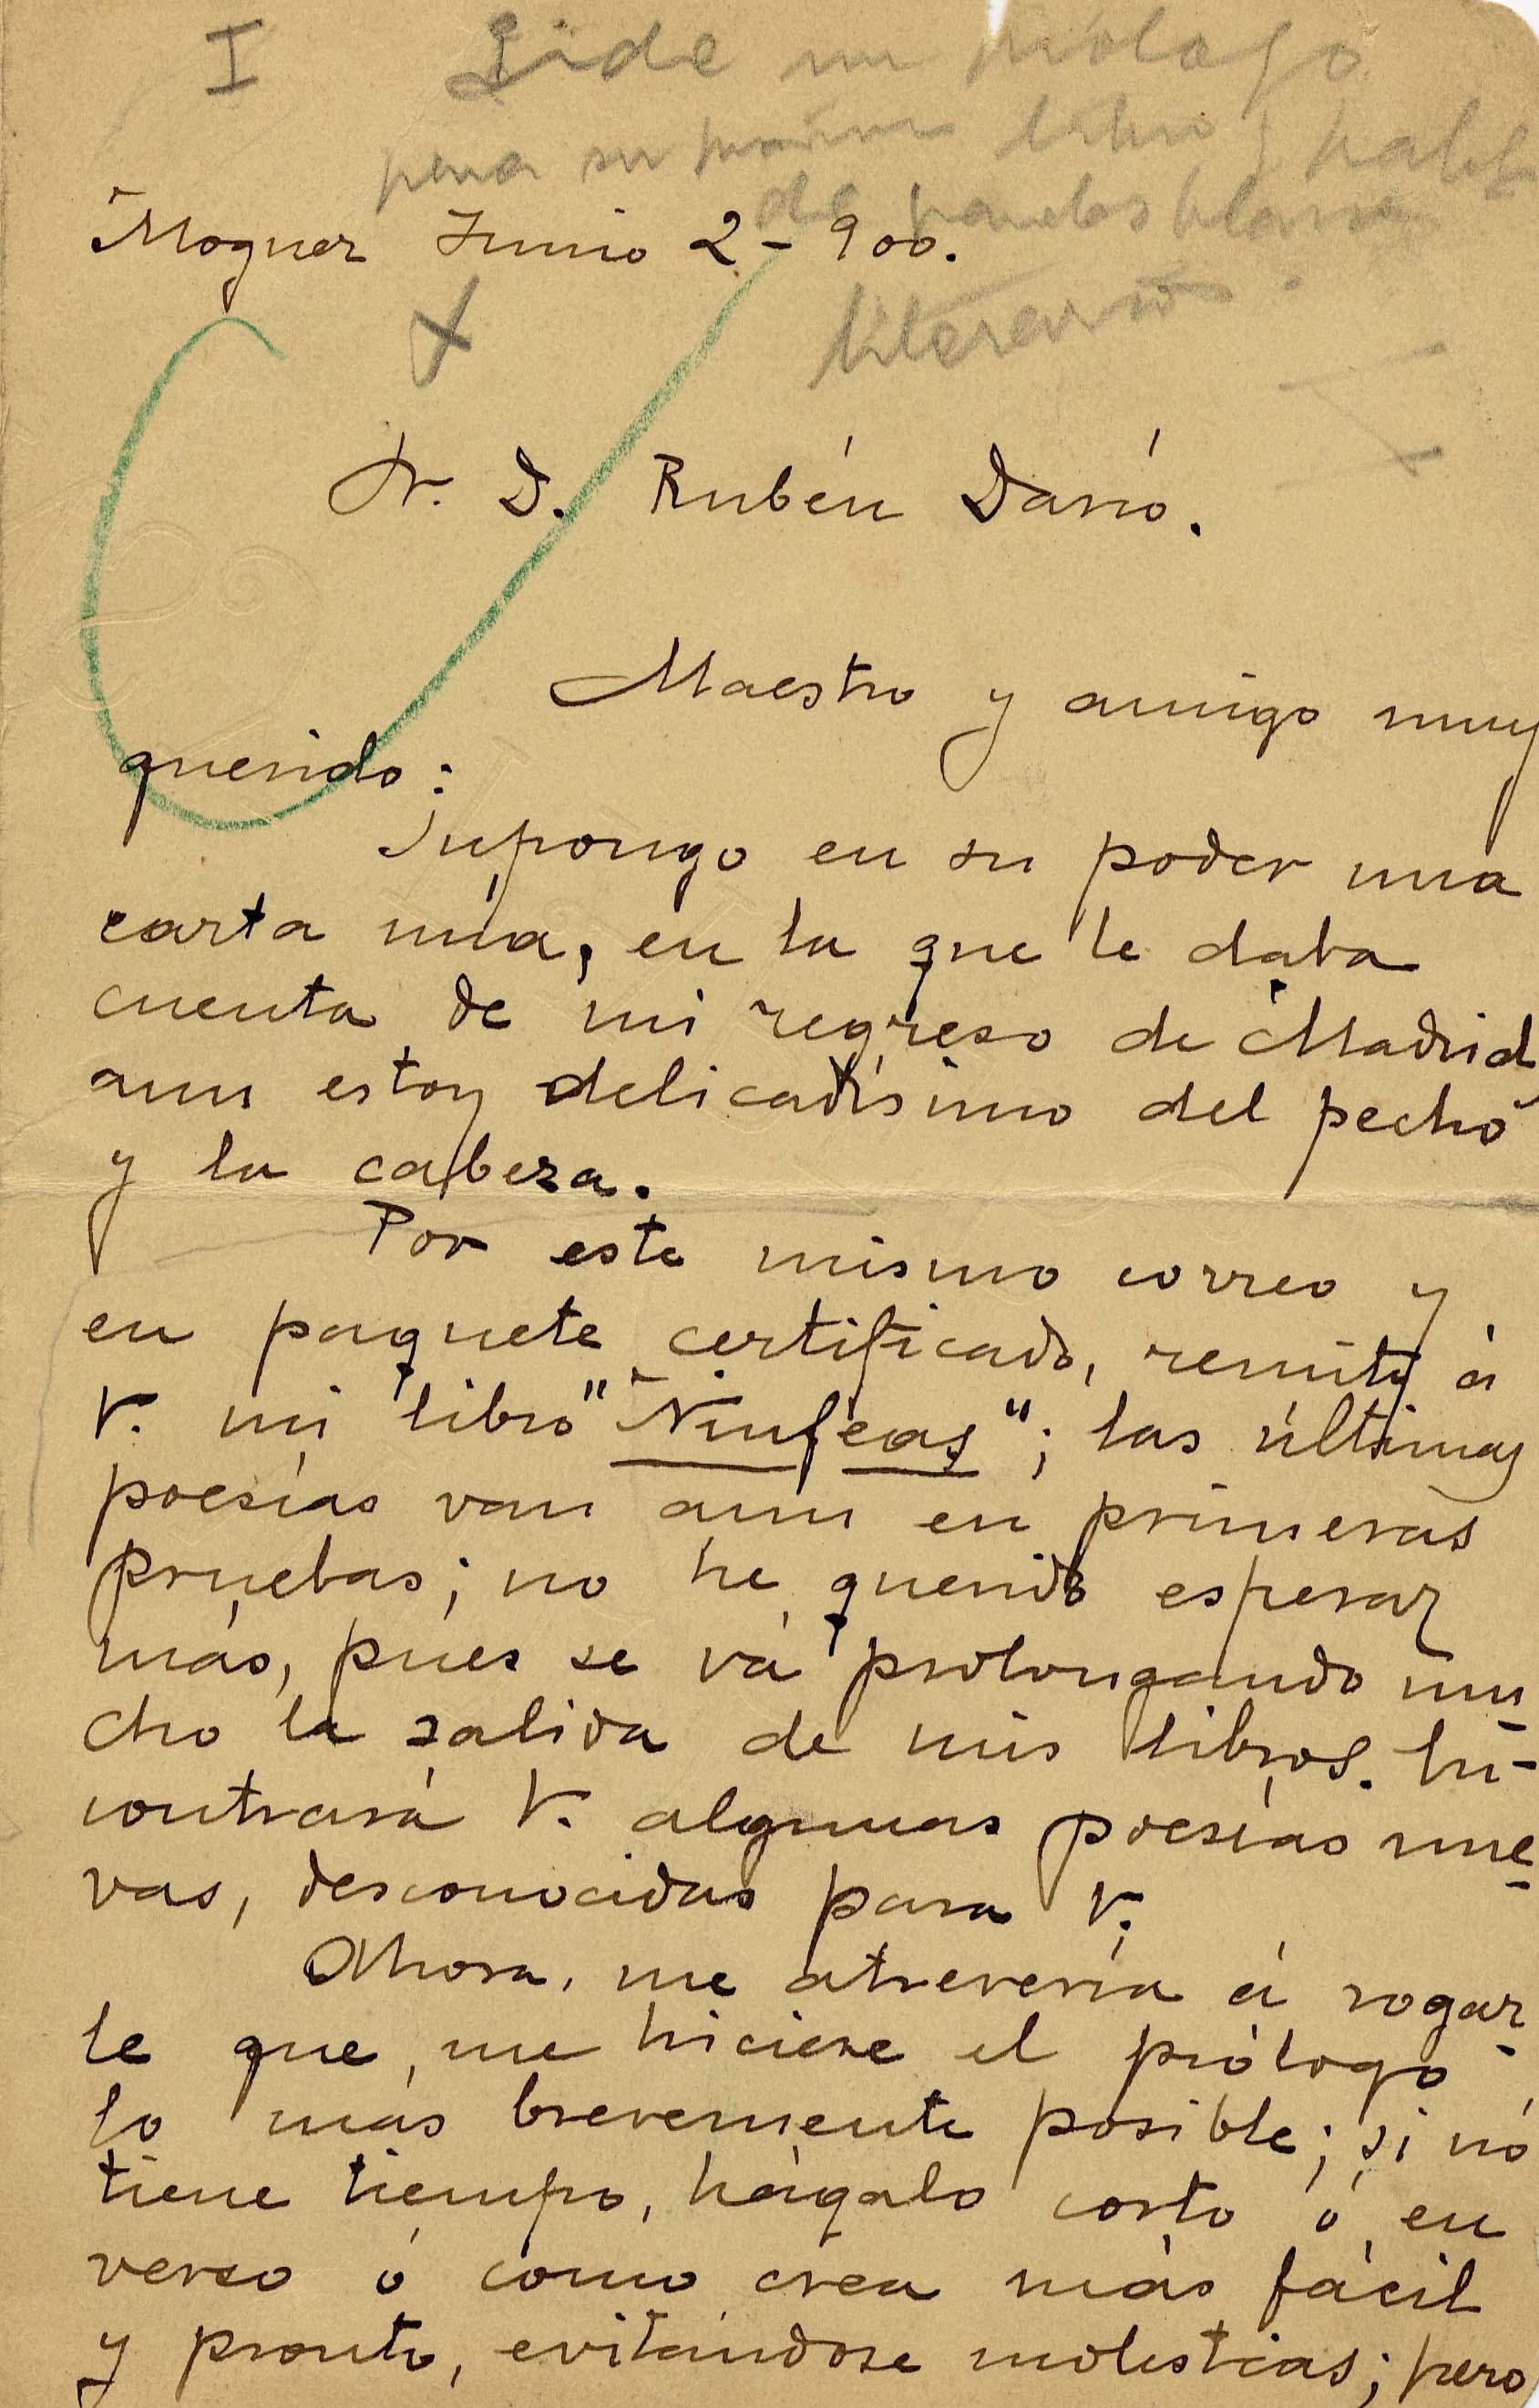 I Pide un prólogo
para su próximo libro y habla
de
literarios.
Moguer Junio 2-900.
Sr. D. Rubén Darío.
Maestro y amigo muy
querido:
Supongo en su poder una
carta mía, en la que le daba
cuenta de mi regreso de Madrid
aun estoy delicadísimo del pecho
y la cabeza.
Por este mismo correo y
en paquete certificado, remito á
V. mi libro "Ninfeas"; las últimas
poesías van aun en primeras
pruebas; no he querido esperar
más, pues se vá prolongando mu-
cho la salida de mis libros. En-
contrará V. algunas poesías nue-
vas, desconocidas para V.
Ahora, me atrevería á rogar-
le que me hiciese el prólogo
lo más brevemente posible; si no
tiene tiempo, hágalo corto ó en
verso ó como crea más fácil
y pronto, evitándose molestias; pero